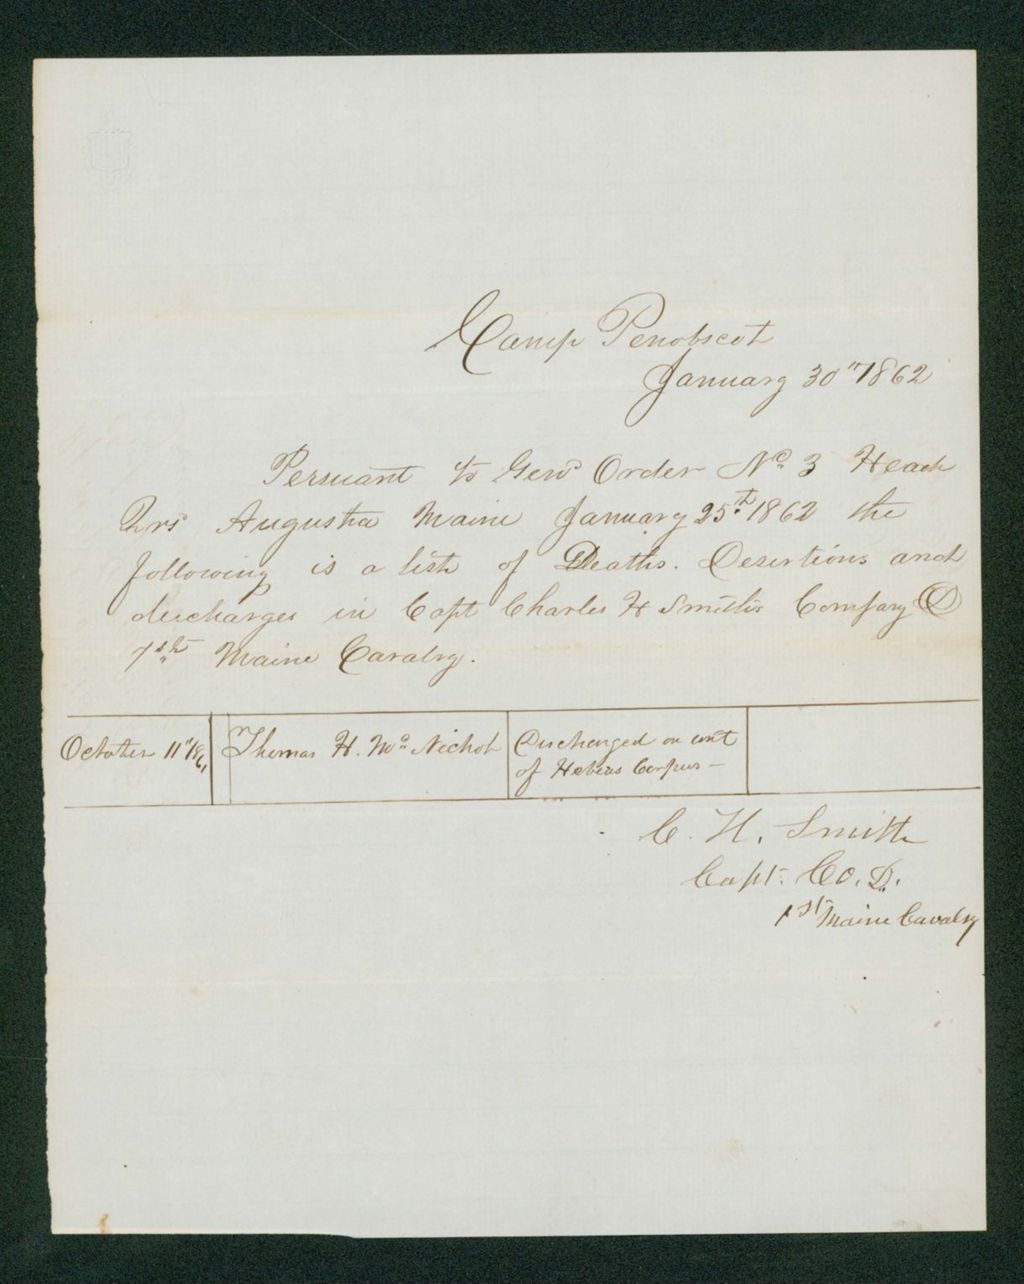 Camp Penobscot
January 30" 1862
Persuant to Genl Order No. 3 Head
Qrs Augusta Maine January 25th 1862 the
following is a list of Deaths. Desertions and
discharges in Capt Charles H Smiths Company D
1st Maine Cavalry.
October 11" 1861 Thomas H. Mc Nichol Discharged on writ
of Hebias Corpus —
C. H. Smith
Capt. Co. D.
1st Maine Cavalry